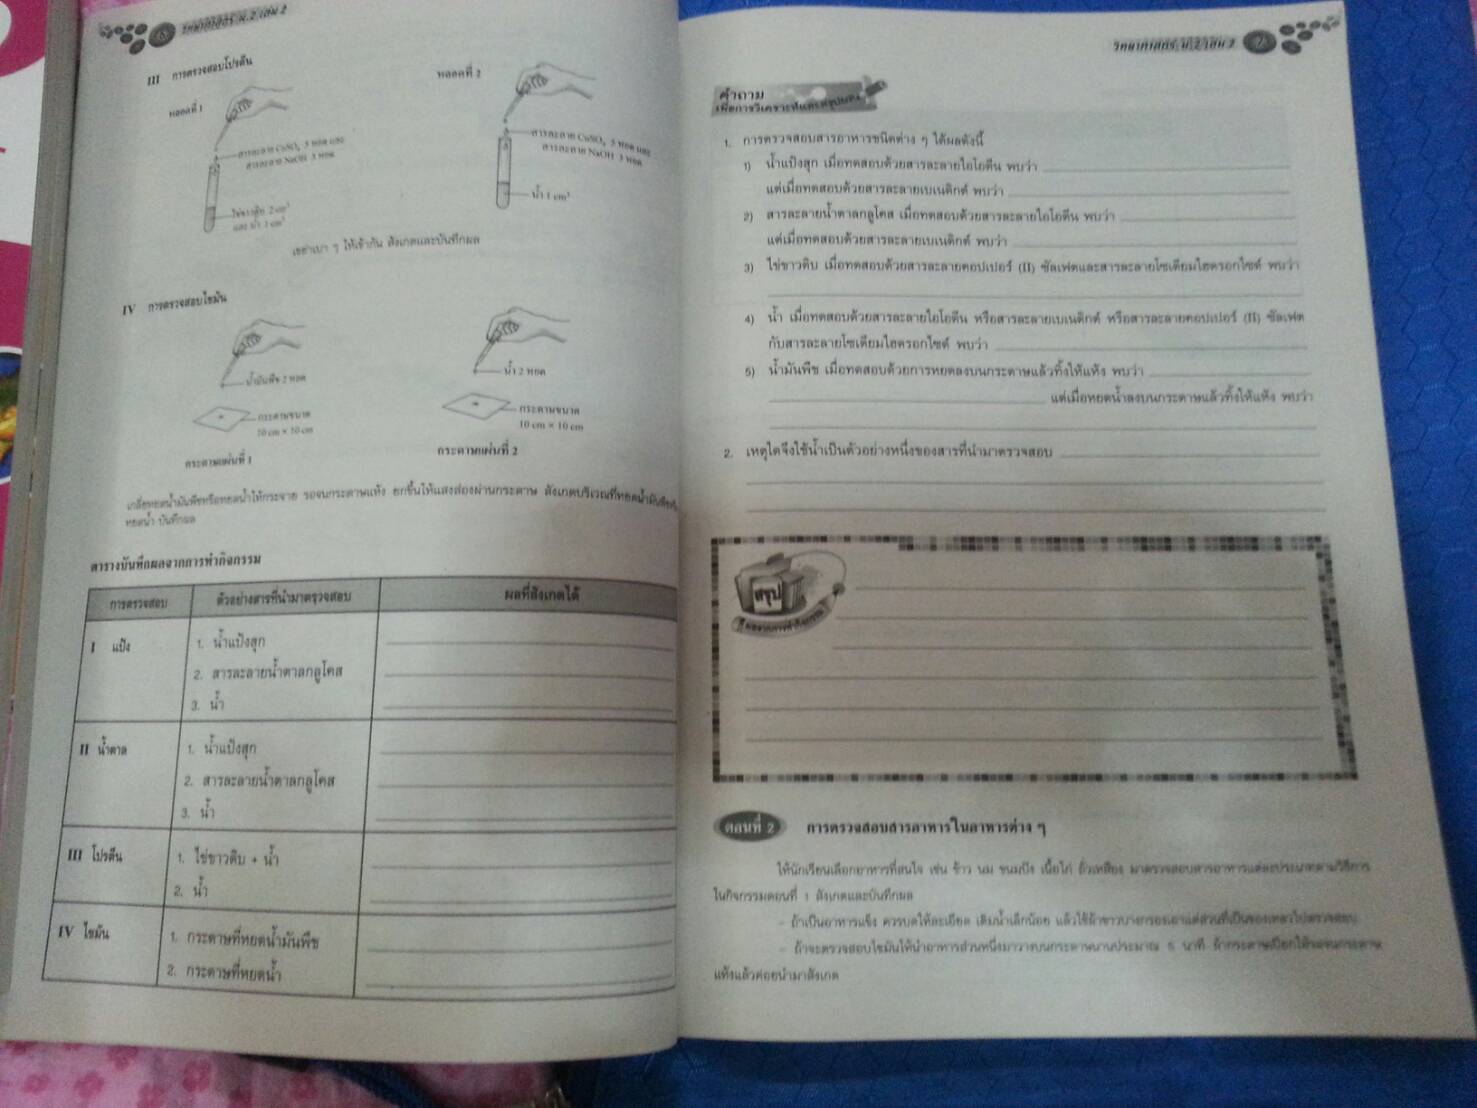 วิทยาศาสตร์ ม.2 เล่ม 2
III การตรวจสอบโปรตีน
หลอดที่ 1
หลอดที่ 2
สารละลาย CuSO₄ 5 หยด และ
สารละลาย NaOH 3 หยด
สารละลาย CuSO₄ 5 หยด และ
สารละลาย NaOH 3 หยด
ไข่ขาวดิบ 2 cm³
และ น้ำ 1 cm³
น้ำ 1 cm³
เขย่าเบา ๆ ให้เข้ากัน สังเกตและบันทึกผล
IV การตรวจสอบไขมัน
น้ำมันพืช 2 หยด
น้ำ 2 หยด
กระดาษขนาด
10 cm × 10 cm
กระดาษขนาด
10 cm × 10 cm
กระดาษแผ่นที่ 1
กระดาษแผ่นที่ 2
เกลี่ยหยดน้ำมันพืชหรือหยดน้ำให้กระจาย รอจนกระดาษแห้ง ยกขึ้นให้แสงส่องผ่านกระดาษ สังเกตบริเวณที่หยดน้ำมันพืช
หยดน้ำ บันทึกผล
ตารางบันทึกผลจากการทำกิจกรรม
การตรวจสอบ ตัวอย่างสารที่นำมาตรวจสอบ ผลที่สังเกตได้
I แป้ง
1. น้ำแป้งสุก
2. สารละลายน้ำตาลกลูโคส
3. น้ำ
II น้ำตาล
1. น้ำแป้งสุก
2. สารละลายน้ำตาลกลูโคส
3. น้ำ
III โปรตีน
1. ไข่ขาวดิบ + น้ำ
2. น้ำ
IV ไขมัน
1. กระดาษที่หยดน้ำมันพืช
2. กระดาษที่หยดน้ำ
วิทยาศาสตร์ ม.2 เล่ม 2
คำถาม
เพื่อการวิเคราะห์และสรุปผล
1. การตรวจสอบสารอาหารชนิดต่าง ๆ ได้ผลดังนี้
1) น้ำแป้งสุก เมื่อทดสอบด้วยสารละลายไอโอดีน พบว่า
แต่เมื่อทดสอบด้วยสารละลายเบเนดิกต์ พบว่า
2) สารละลายน้ำตาลกลูโคส เมื่อทดสอบด้วยสารละลายไอโอดีน พบว่า
แต่เมื่อทดสอบด้วยสารละลายเบเนดิกต์ พบว่า
3) ไข่ขาวดิบ เมื่อทดสอบด้วยสารละลายคอปเปอร์ (II) ซัลเฟตและสารละลายโซเดียมไฮดรอกไซด์ พบว่า
4) น้ำ เมื่อทดสอบด้วยสารละลายไอโอดีน หรือสารละลายเบเนดิกต์ หรือสารละลายคอปเปอร์ (II) ซัลเฟต
กับสารละลายโซเดียมไฮดรอกไซด์ พบว่า
5) น้ำมันพืช เมื่อทดสอบด้วยการหยดลงบนกระดาษแล้วทิ้งให้แห้ง พบว่า
แต่เมื่อหยดน้ำลงบนกระดาษแล้วทิ้งให้แห้ง พบว่า
2. เหตุใดจึงใช้น้ำเป็นตัวอย่างหนึ่งของสารที่นำมาตรวจสอบ
สรุป
ผลจากการทำกิจกรรม
ตอนที่ 2 การตรวจสอบสารอาหารในอาหารต่าง ๆ
ให้นักเรียนเลือกอาหารที่สนใจ เช่น ข้าว นม ขนมปัง เนื้อไก่ ถั่วเหลือง มาตรวจสอบสารอาหารแต่ละประเภทตามวิธีการ
ในกิจกรรมตอนที่ 1 สังเกตและบันทึกผล
- ถ้าเป็นอาหารแข็ง ควรบดให้ละเอียด เติมน้ำเล็กน้อย แล้วใช้ผ้าขาวบางกรองเอาแต่ส่วนที่เป็นของเหลวไปตรวจสอบ
- ถ้าจะตรวจสอบไขมันให้นำอาหารส่วนหนึ่งมาวางบนกระดาษนานประมาณ 5 นาที ถ้ากระดาษเปียกให้รอจนกระดาษ
แห้งแล้วค่อยนำมาสังเกต